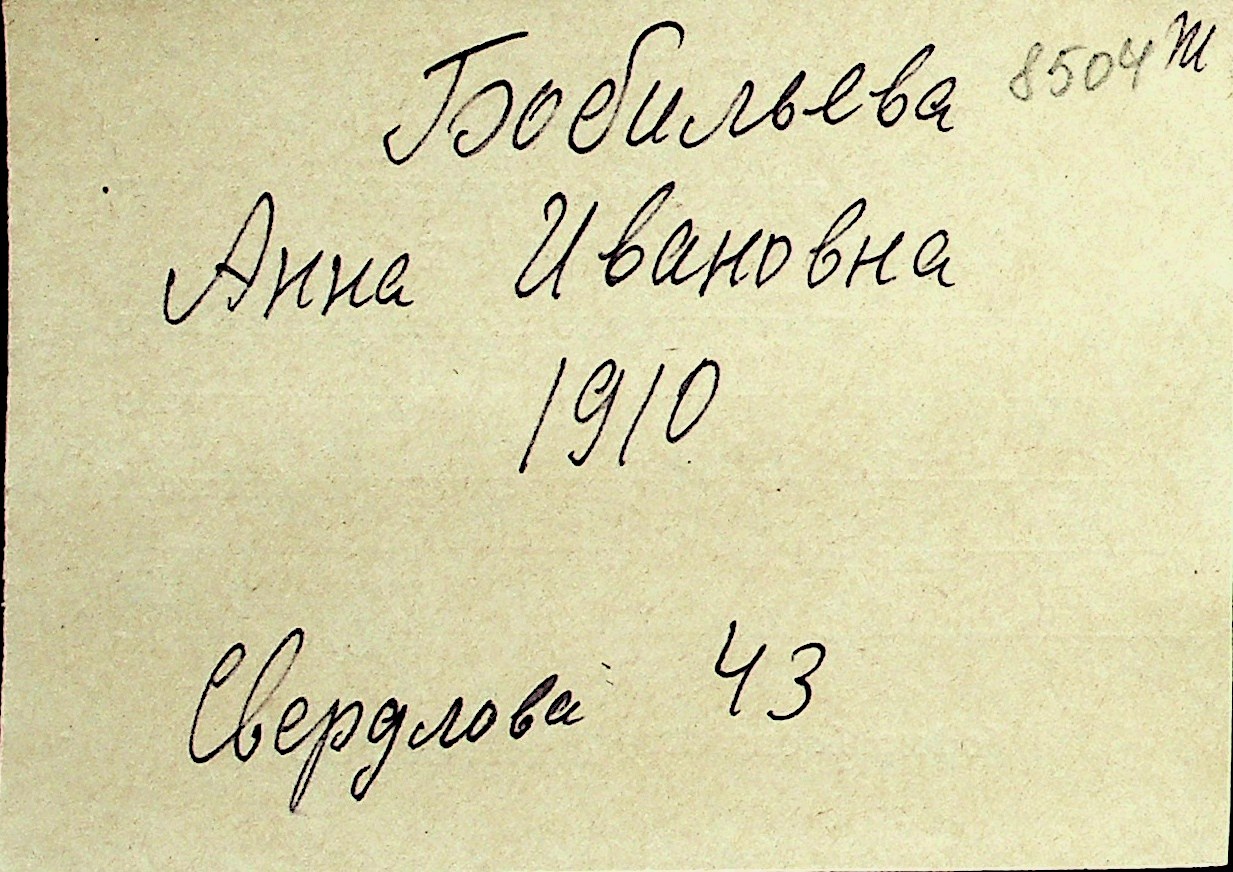 Бобильева 8504
Анна Ивановна
1910
Свердлова 43